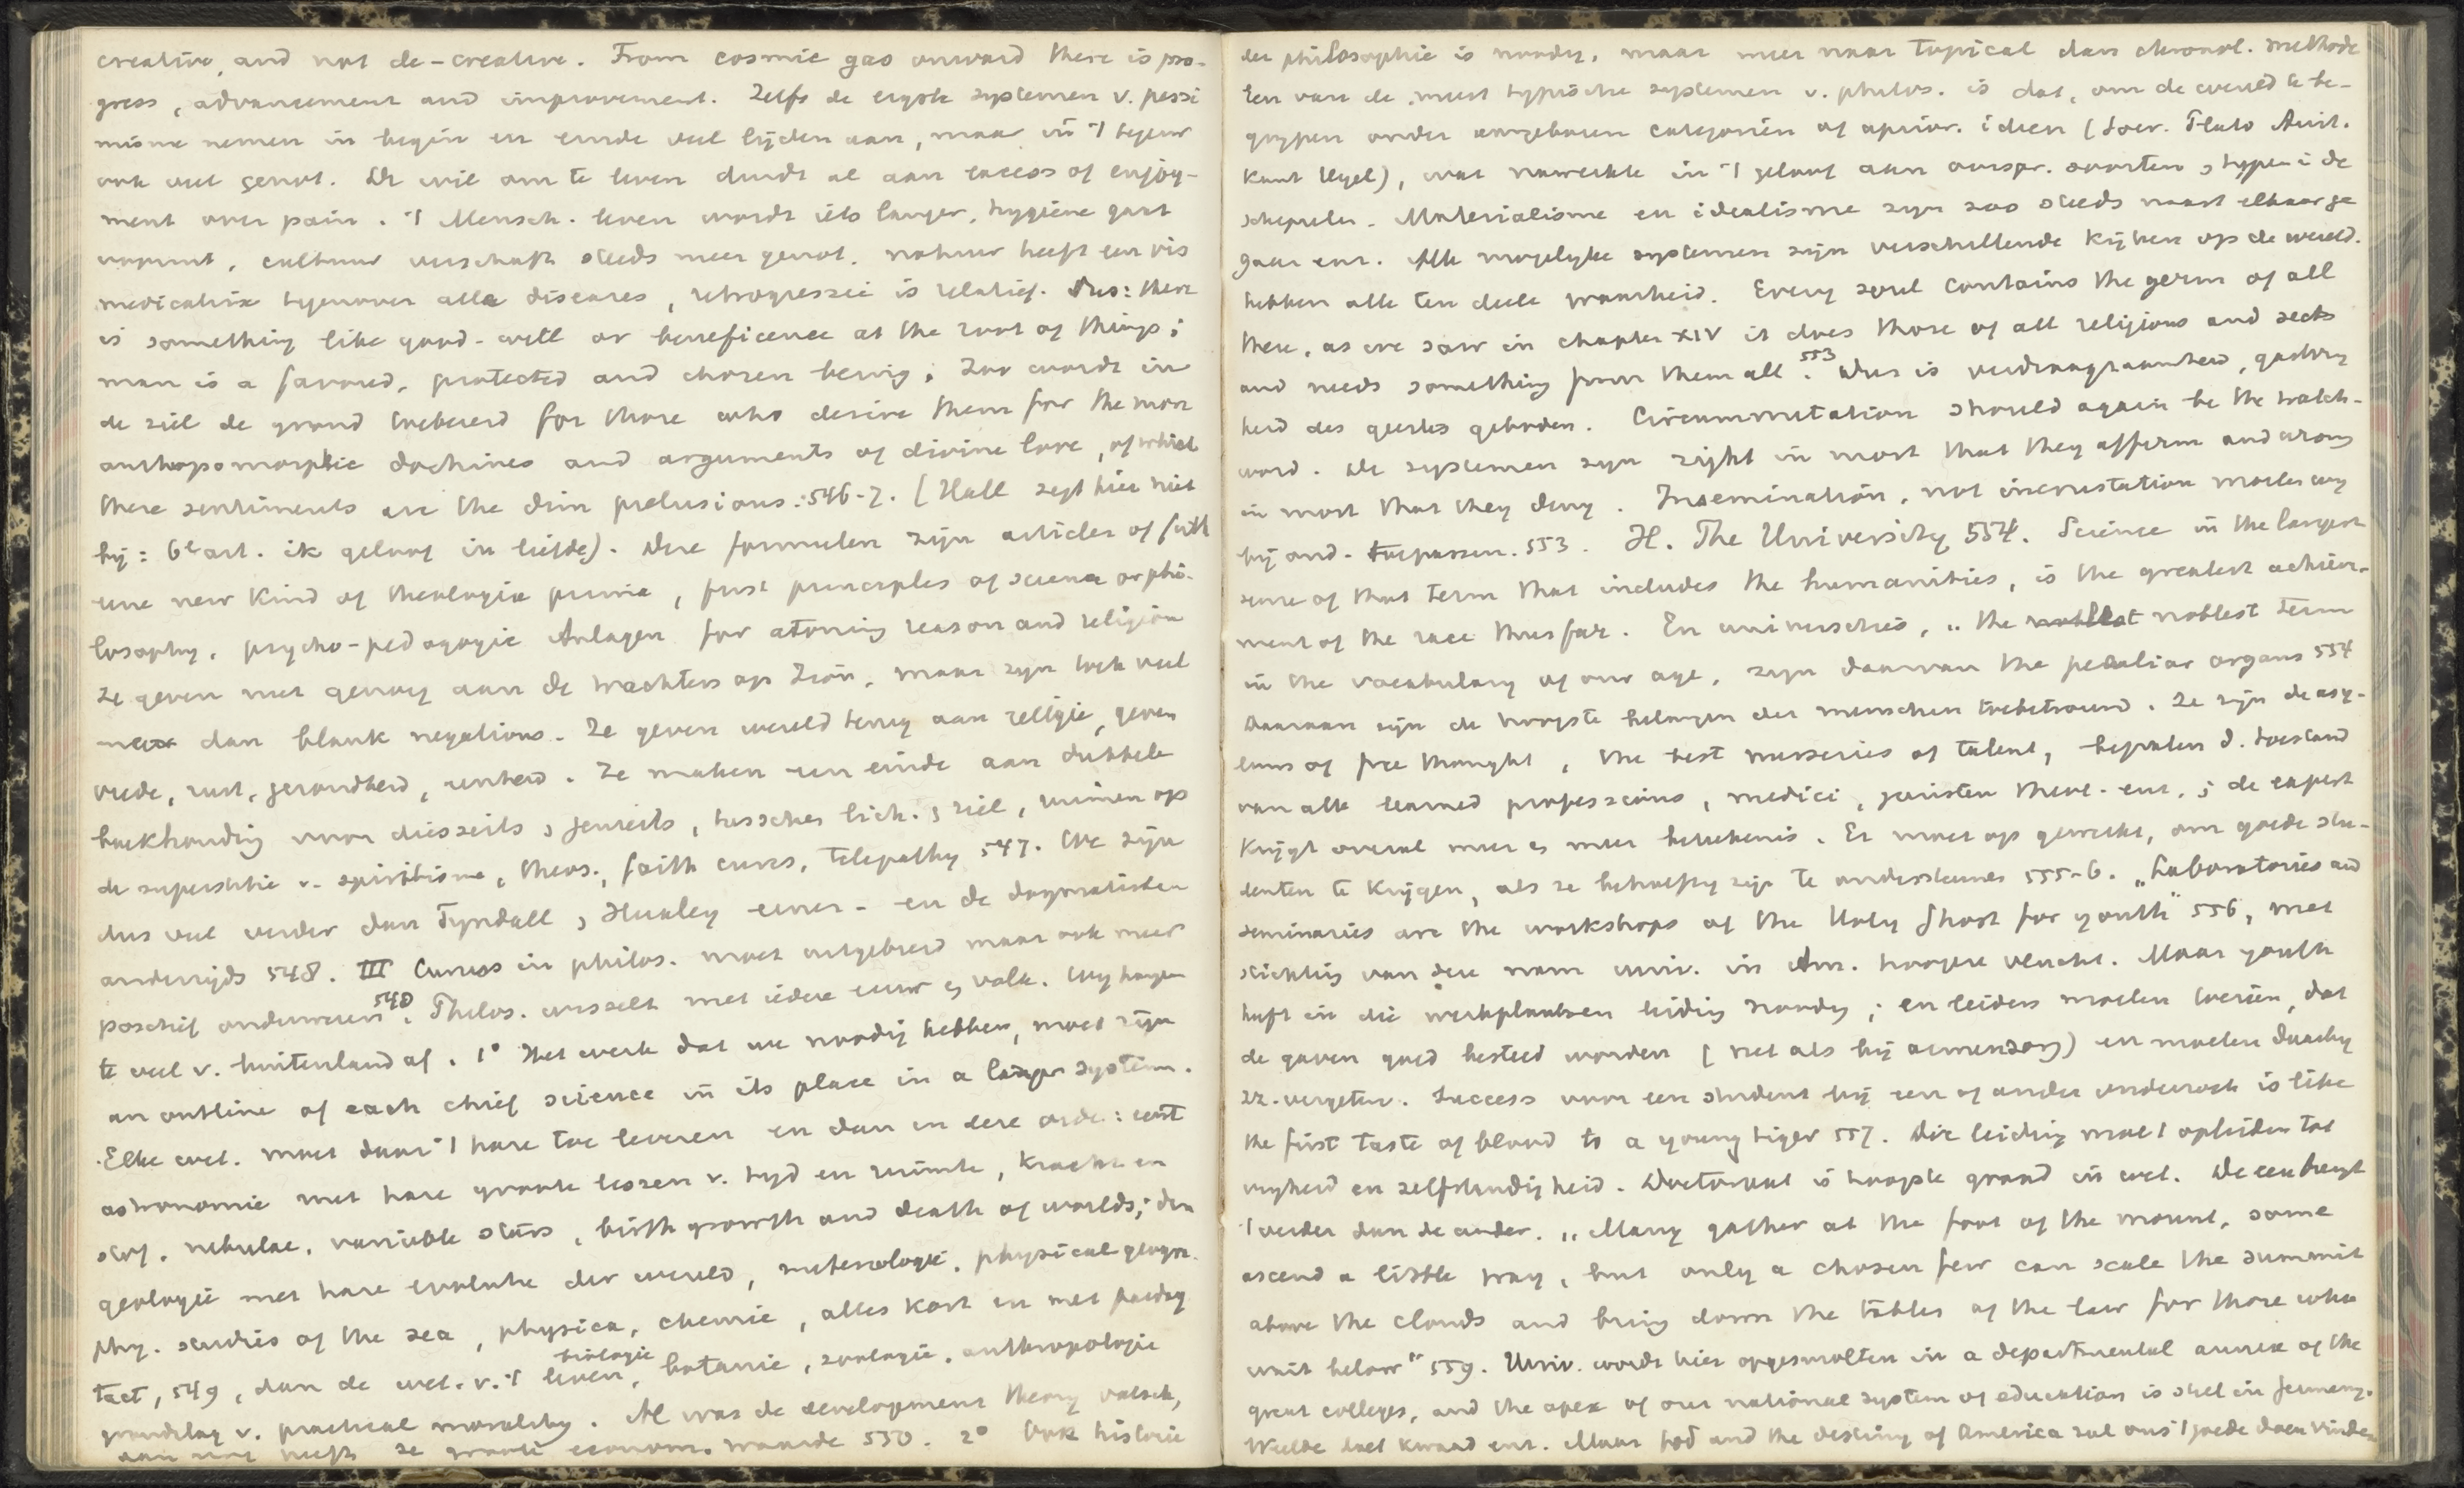 creative, and not de-creative. From cosmic gas onward there is pro-
gress, advancement and improvement. Zelfs de ergste systemen v. pessi
misme nemen in begin en einde veel lijden aan, maar in 't tegenw
ook veel genot. De wil om te leven duidt al aan excess of enjoy-
ment over pain. 't Mensch. leven wordt iets langer, hygiene gaat
vooruit, cultuur verschaft steeds meer genot. natuur heeft een vis
medicatrix tegenover alle diseases, retrogressie is relatief. Dus: there
is something like good-will or beneficence at the root of things;
man is a favored, protected and chosen being; Zoo wordt in
de ziel de grond toebereid for those who desire them for the more
anthropomorphic doctrines and arguments of divine love, of which
these sentiments are the dim prelusions. 546-7. (Hall zegt hier niet
bij: 6e art. ik geloof in liefde). Deze formulen zijn articles of faith
eene new kind of theologia prima, first principles of science or phi-
losophy, psycho-pedagogic Anlagen for atoning reason and religion
Ze geven niet genoeg aan de wachters op Zion, maar zijn toch veel
meer dan blank negations. Ze geven wereld terug aan religie, geven
vrede, rust, gezondheid, eenheid. Ze maken een einde aan dubbele
boekhouding van diesseits, jenseits, tusschen lich. , ziel, ruimen op
de superstitie v. spiritisme, theos., faith cures, telepathy 547. We zijn
dus veel verder dan Tyndall, Huxley eener- en de dogmatisten
anderzijds 548. III Cursus in philos. moet uitgebreid maar ook meer
positief onderwezen 548. Philos. wisselt met iedere eeuw en volk. Wij hangen
te veel v. buitenland af. 1° Het werk dat we noodig hebben, moet zijn
an outline of each chief science in its place in a larger system.
Elke wet. moet daar 't hare toe leveren en dan in deze orde: eerst
astronomie met hare groote lessen v. tijd en ruimte, kracht en
stof. nebulae, variable stars, birth growth and death of worlds; dan
geologie met hare evolutie der wereld, meteorologie, physical geogra-
phy. studies of the sea, physica, chemie, alles kort en met paedag
tact, 549, dan de wet. v. 't leven, biologie botanie, zoologie, anthropologie
grondslag v. practical morality. Al was de development theory valsch,
dan nog heeft ze groote econom. waarde 550. 2° Ook historie
der philosophie is noodig, maar meer naar topical dan chronol. methode
Een van de meest typische systemen v. philos. is dat, om de wereld te be-
grijpen onder aangeboren categoriën of aprior. ideen (Socr. Plato Arist.
Kant Hegel), wat nawerkte in 't geloof aan oorspr. soorten, typen i de
schepselen. Materialisme en idealisme zijn zoo steeds naast elkaar ge
gaan enz. Alle mogelijke systemen zijn verschillende kijken op de wereld.
hebben alle ten deele waarheid. Every soul contains the germ of all
these, as we saw in chapter XIV it does those of all religions and sects
and needs something from them all 553. Dus is verdraagzaamheid, gastvrij
heid des geestes geboden. Circummutation should again be the watch-
word. De systemen zijn right in most that they affirm and wrong
in most that they deny. Insemination, not incrustation moeten wij
bij ond. toepassen. 553. H. The University 554. Science in the largest
sense of that term that includes the humanities, is the greatest achieve-
ment of the race thus far. En universities, „the noblest term
in the vocabulary of our age, zijn daarvan the peculiar organs 554
Daaraan zijn de hoogste belangen der menschen toebetrouwd. Ze zijn de asy-
lums of free thought, the best nurseries of talent, bepalen d. toestand
van alle learned professions, medici, juristen theol. enz.; de expert
krijgt overal meer en meer beteekenis. Er moet op gewerkt, om goede stu-
denten te krijgen, als ze behoeftig zijn te ondersteunen 555-6. „Laboratories and
seminaries are the workshops of the Holy Ghost for youth" 556, met
stichting van deze nam univ. in Am. hoogere vlucht. Maar youth
heeft in die werkplaatsen leiding noodig; en leiders moeten toezien, dat
de gaven goed besteed worden (net als bij armenzorg) en moeten daarbij
zz. vergeten. Success voor een student bij een of ander onderzoek is like
the first taste of blood to a young tiger 557. Die leiding moet opleiden tot
vrijheid en zelfstandigheid. Doctoraat is hoogste graad in wet. De een brengt
't verder dan de ander. „Many gather at the foot of the mount, some
ascend a little way, but only a chosen few can scale the summit
above the clouds and bring down the tables of the law for those who
wait below" 559. Univ. wordt hier opgesmolten in a departmental annex of the
great colleges, and the apex of our national system of education is still in Germany.
Weelde doet kwaad enz. Maar God and the destiny of America zal ons 't goede doen vinden